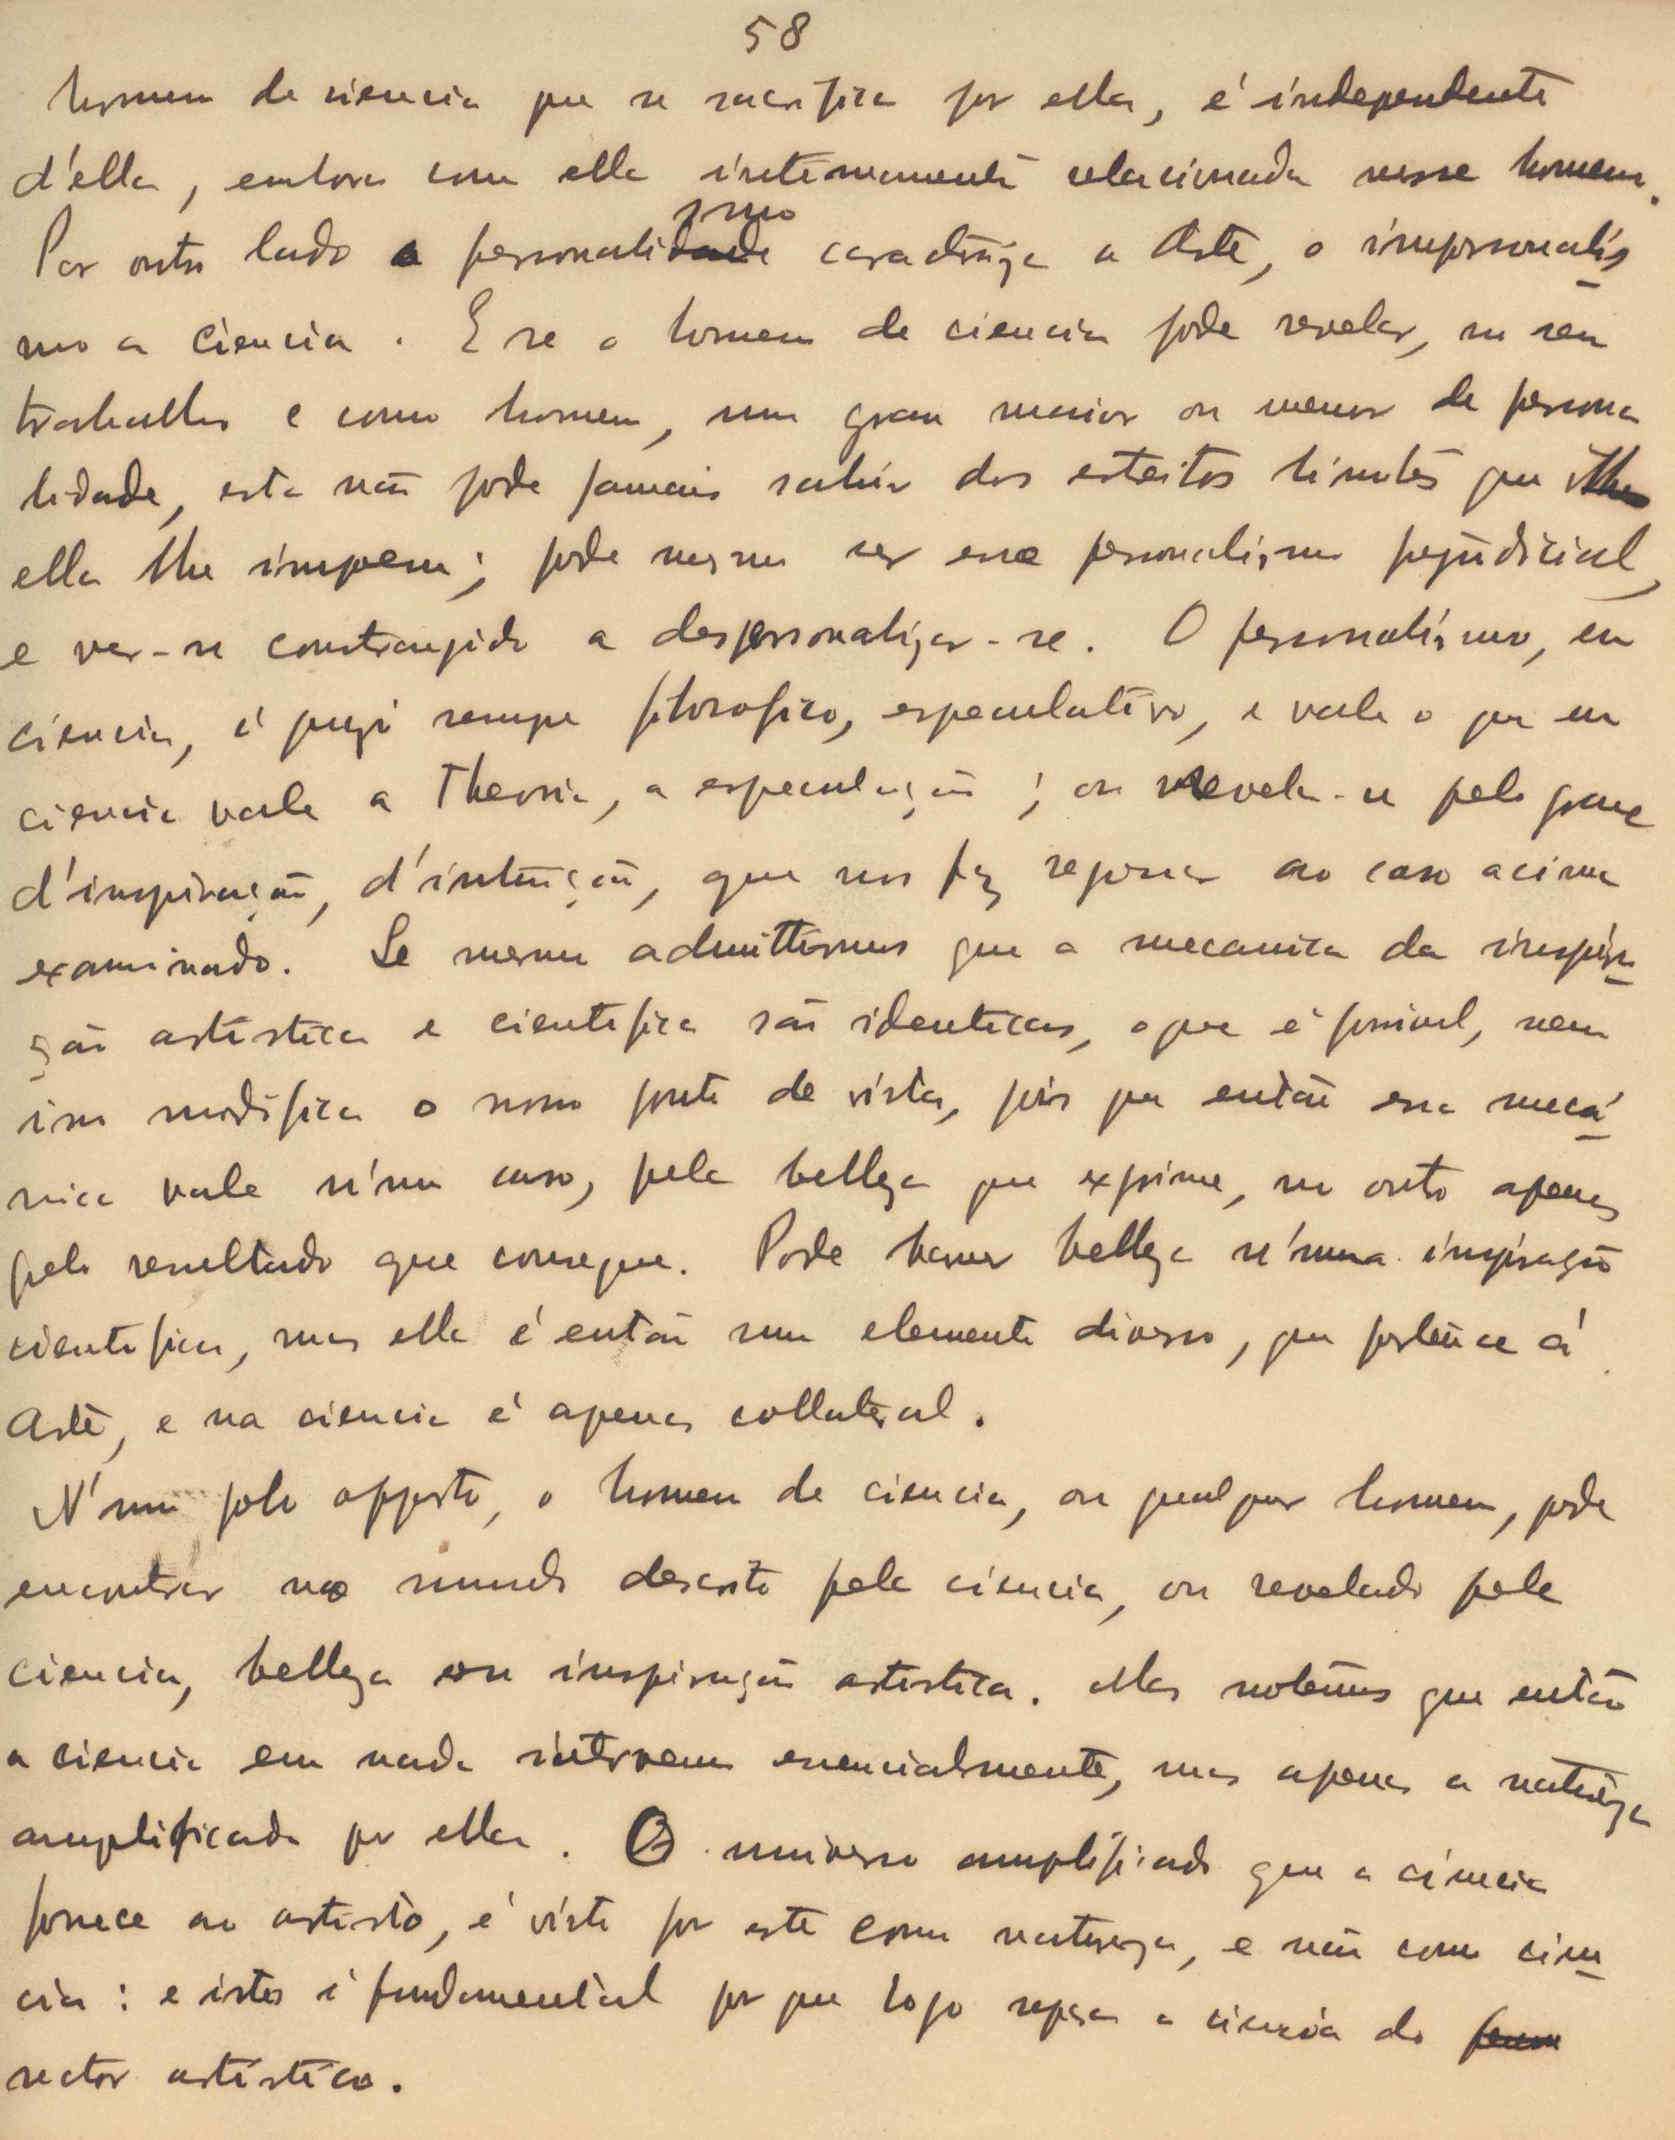 58
homem de ciencia que se sacrifica por ella, é independente
d'ella, embora com ella intimamente relacionada nesse homem.
Por outro lado o personalismo caracteriza a Arte, o impersonalis
mo a Ciencia. E se o homem de ciencia pode revelar, no seu
trabalho e como homem, um grau maior ou menor de persona
lidade, esta não pode jamais sahir dos estreitos limites que
ella lhe impoem; pode mesmo ser esse personalismo prejudicial,
e ver-se constrangido a despersonalizar-se. O personalismo, em
ciencia, é quazi sempre filosofico, especulativo, e vale o que em
ciencia vale a Theoria, a especulação; ou revela-se pelo grau
d'inspiração, d'intuição, que nos faz regressar ao caso acima
examinado. Se mesmo admittirmos que a mecanica da inspira
ção artistica e cientifica são identicas, o que é possivel, nem
isso modifica o nosso ponto de vista, pois que então essa mecá
nica vale n'um caso, pela belleza que exprime, no outro apenas
pelo resultado que consegue. Pode haver belleza n'uma inspiração
cientifica, mas ella é então um elemento diverso, que pertence á
Arte, e na ciencia é apenas collateral.
N'um polo opposto, o homem de ciencia, ou qualquer homem, pode
encontrar no mundo descrito pela ciencia, ou revelado pela
ciencia, belleza ou inspiração artistica. Mas notemos que então
a ciencia em nada intervem essencialmente, mas apenas a natureza
amplificada por ella. O universo amplificado que a ciencia
fornece ao artista, é visto por este como natureza, e não como cien
cia: e isto é fundamental por que logo separa a ciencia do
sector artistico.